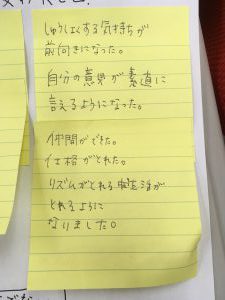 しゅうしょくする気持ちが
前向きになった。
自分の意見が素直に
言えるようになった。
仲間ができた。
仕格がとれた。
リズムがとれる
とれるように
なりました。